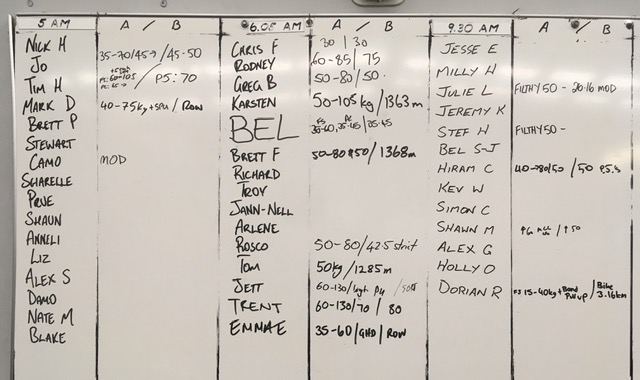 5 AM A / B
NICK H
JO 35-70/45 / 45-50
TIM H P5: 70
MARK D 40-75kg + / ROW
BRETT P
STEWART
CAMO MOD
SHARELLE
PRUE
SHAUN
ANNELI
LIZ
ALEX S
DAMO
NATE M
BLAKE
6.05 AM A / B
CHRIS F 30 | 30
RODNEY 60-85/ 75
GREG B 50-80/50
KARSTEN 50-105kg/1363m
BEL
BRETT F 50-80 /1368m
RICHARD
TROY
JANN-NELL
ARLENE
ROSCO 50-80/42.5 strict
TOM 50kg/1285m
JETT 60-130/
TRENT 60-130/70 / 80
EMMAE 35-60/GHD/ROW
9.30 AM A / B
JESSE E
MILLY H
JULIE L FILTHY 50 - 20:16 MOD
JEREMY K
STEF H FILTHY 50 -
BEL S-J
HIRAM C 40-80/50 / 50 P5.5
KEV W
SIMON C
SHAWN M
ALEX G
HOLLY O
DORIAN R 15-40kg + Band Pull up / Bike 3.16km